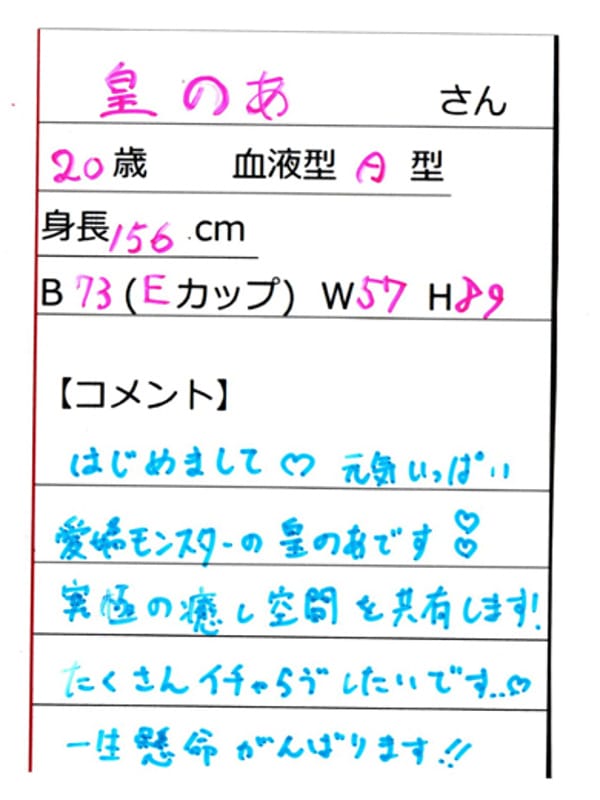 皇のあ さん
20歳 血液型 A 型
身長156 cm
B 73 (Eカップ) W57 H89
【コメント】
はじめまして♡ 元気いっぱい
愛嬌モンスターの皇のあです♡♡
究極の癒し空間を共有します!
たくさんイチャらヴしたいです..♡
一生懸命がんばります!!